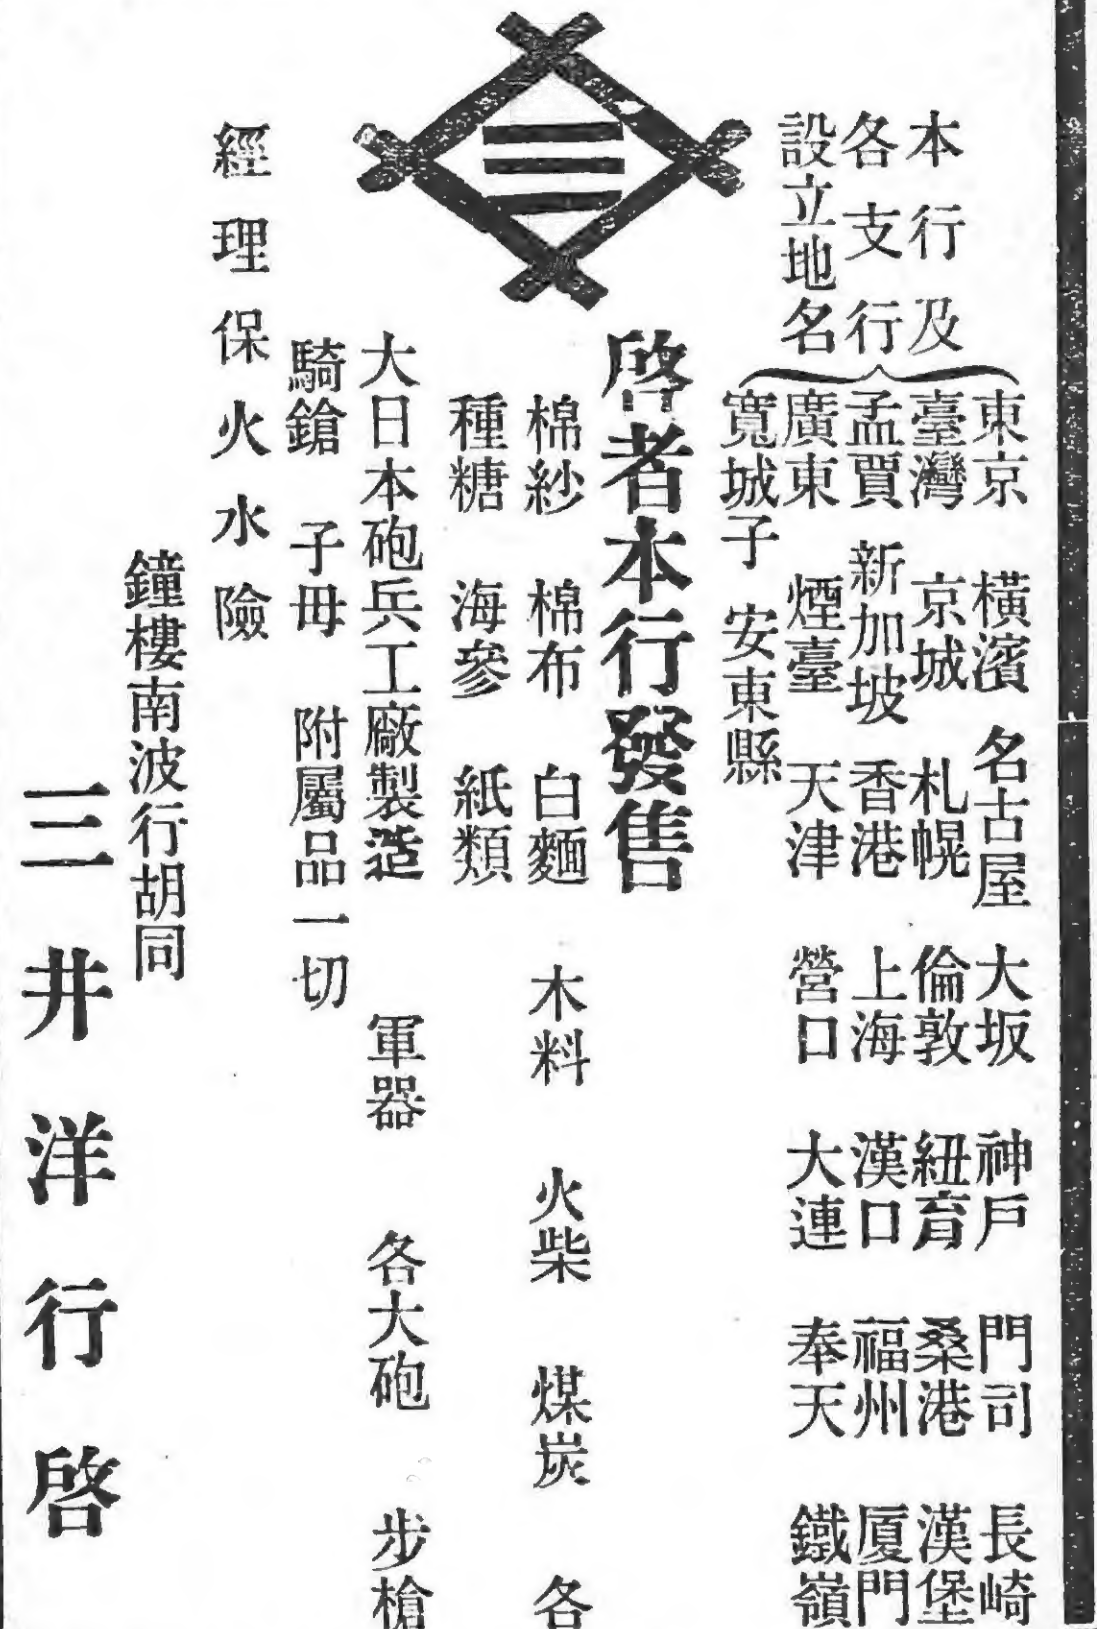 本行及
各支行
設立地名
東京 橫濱 名古屋 大坂 神戶 門司 長崎
臺灣 京城 札幌 倫敦 紐育 桑港 漢堡
孟買 新加坡 香港 上海 漢口 福州 厦門
廣東 煙臺 天津 營口 大連 奉天 鐵嶺
寬城子 安東縣
啓者本行發售
棉紗 棉布 白麵 木料 火柴 煤炭 各
種糖 海參 紙類
大日本砲兵工廠製造 軍器 各大砲 步槍
騎鎗 子母 附屬品一切
經理保火水險
鐘樓南波行胡同
三井洋行啓
三